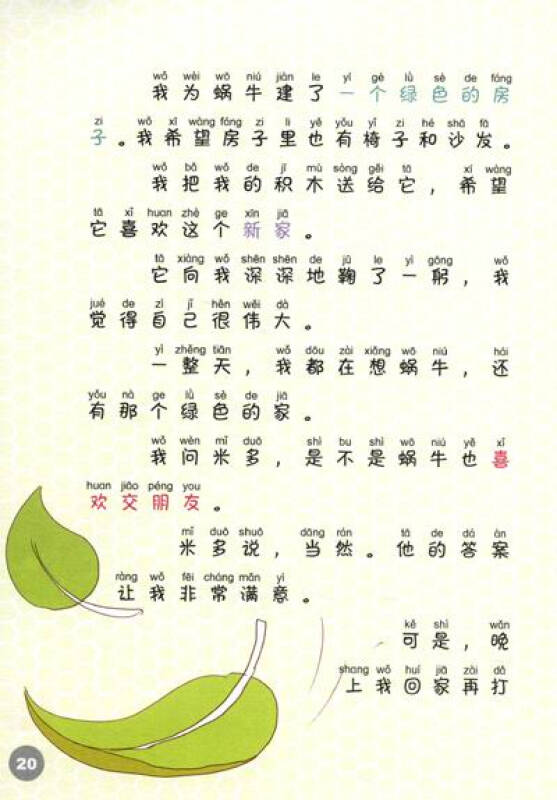 wǒ wèi wō niú jiàn le yí gè lǜ sè de fáng
我为蜗牛建了一个绿色的房
zi wǒ xī wàng fáng zi lǐ yě yǒu yǐ zi hé shā fā
子。我希望房子里也有椅子和沙发。
wǒ bǎ wǒ de jī mù sòng gěi tā xī wàng
我把我的积木送给它，希望
tā xǐ huan zhè ge xīn jiā
它喜欢这个新家。
tā xiàng wǒ shēn shēn de jū le yì gōng wǒ
它向我深深地鞠了一躬，我
jué de zì jǐ hěn wěi dà
觉得自己很伟大。
yì zhěng tiān wǒ dōu zài xiǎng wō niú hái
一整天，我都在想蜗牛，还
yǒu nà ge lǜ sè de jiā
有那个绿色的家。
wǒ wèn mǐ duō shì bu shì wō niú yě xǐ
我问米多，是不是蜗牛也喜
huan jiāo péng you
欢交朋友。
mǐ duō shuō dāng rán tā de dá àn
米多说，当然。他的答案
ràng wǒ fēi cháng mǎn yì
让我非常满意。
kě shì wǎn
可是，晚
shang wǒ huí jiā zài dǎ
上我回家再打
20